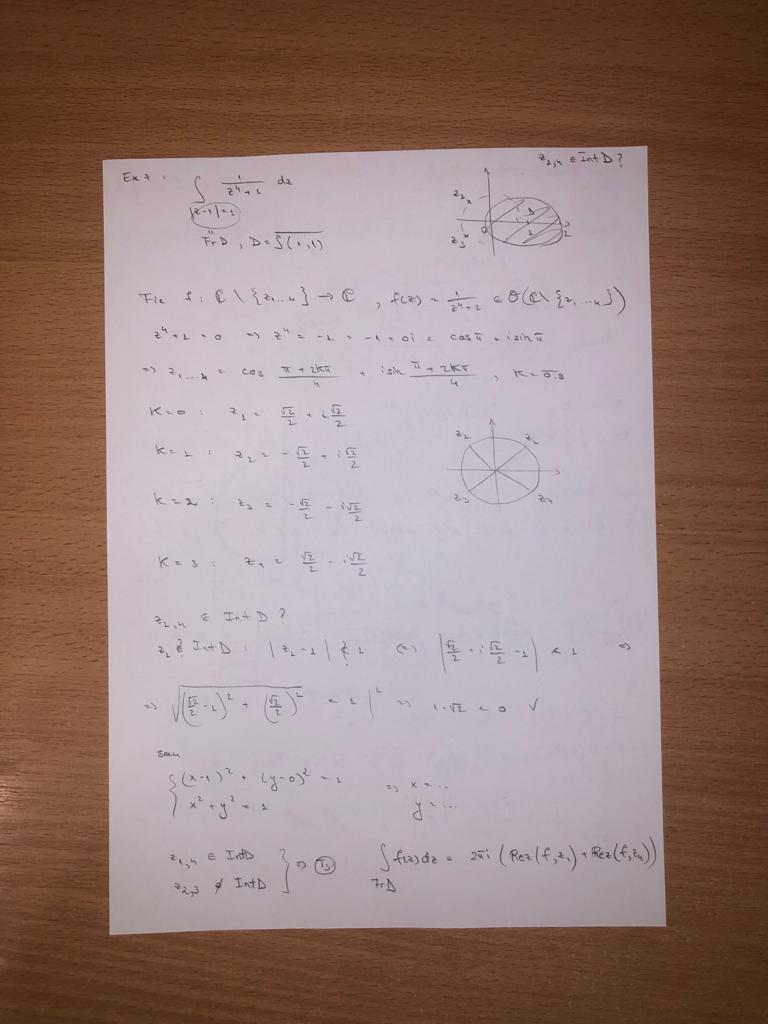 z₁,₄ ∈ Int D ?
Ex 7 : ∫ 1/(z⁴+1) dz
|z-1|=1
Fr D , D =
z₂ x
z₃ x
0 1 2
Fie f : ℂ \ {z₁...₄} → ℂ , f(z) = 1/(z⁴+1) ∈ O(ℂ \ {z₁...₄})
z⁴+1 = 0 ⇒ z⁴ = -1 = -1+0i = cos π + i sin π
⇒ z₁...₄ = cos (π+2kπ)/4 + i sin (π+2kπ)/4 , k = 0,3
K=0 : z₁ = √2/2 + i √2/2
K=1 : z₂ = -√2/2 + i √2/2
K=2 : z₃ = -√2/2 - i √2/2
K=3 : z₄ = √2/2 - i √2/2
z₂ z₁
z₃ z₄
z₁,₄ ∈ Int D ?
z₁ ∈ Int D : |z₁-1| < 1 ⇔ |√2/2 + i √2/2 - 1| < 1 ⇒
⇒ √((√2/2 - 1)² + (√2/2)²) < 1 |² ⇒ 1-√2 < 0 ✓
sau
{ (x-1)² + (y-0)² = 1 ⇒ x = ...
x² + y² = 1 y = ...
z₁,₄ ∈ Int D
z₂,₃ ∉ Int D } ⇒ ∫ f(z)dz = 2πi (Rez(f,z₁) + Rez(f,z₄))
Fr D